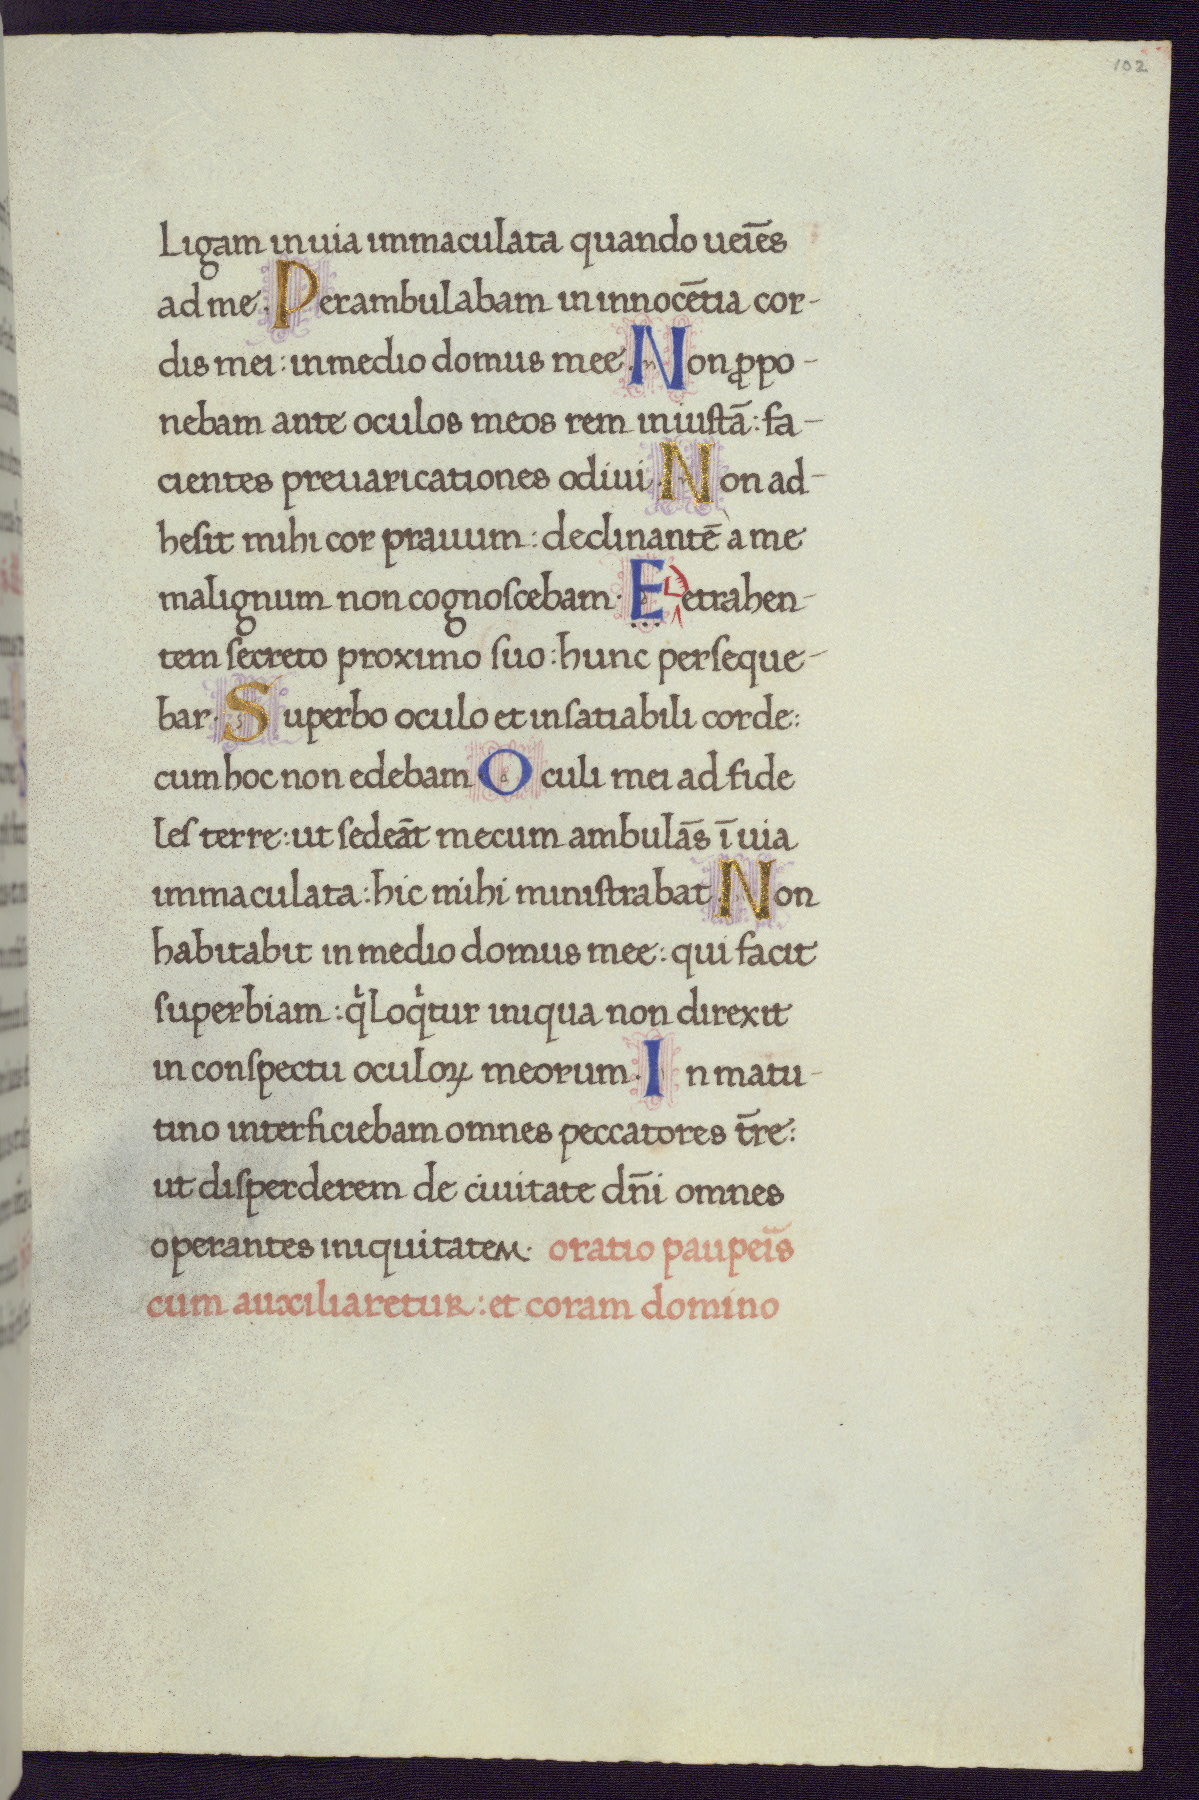 102
Ligam in uia immaculata quando ueiēs
ad me. Perambulabam in innocētia cor-
dis mei: in medio domus mee. Non ꝓpo-
nebam ante oculos meos rem iniustā: fa-
cientes preuaricationes odiui. Non ad-
hesit mihi cor prauum: declinantē a me
malignum non cognoscebam. E Detrahen-
tem secreto proximo suo: hunc perseque-
bar. Superbo oculo et insatiabili corde:
cum hoc non edebam. Oculi mei ad fide
les terre: ut sedeāt mecum ambulās ī uia
immaculata: hic mihi ministrabat. Non
habitabit in medio domus mee: qui facit
superbiam: qͥ loqͥtur iniqua non direxit
in conspectu oculoꝝ meorum. In matu-
tino interficiebam omnes peccatores t̄re:
ut disperderem de ciuitate dn̄i omnes
operantes iniquitatem. oratio paupeīs
cum auxiliaretur: et coram domino